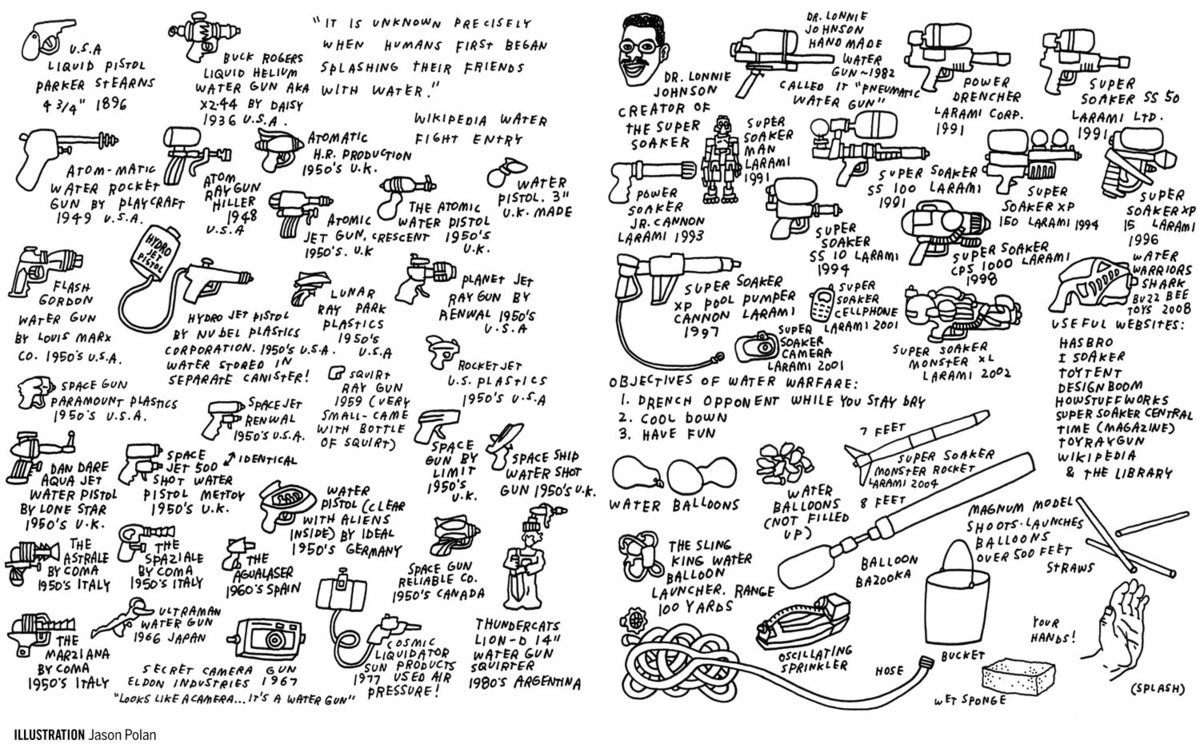 U.S.A
LIQUID PISTOL
PARKER STEARNS
4 3/4" 1896
BUCK ROGERS
LIQUID HELIUM
WATER GUN AKA
XZ-44 BY DAISY
1936 U.S.A.
"IT IS UNKNOWN PRECISELY
WHEN HUMANS FIRST BEGAN
SPLASHING THEIR FRIENDS
WITH WATER."
WIKIPEDIA WATER
FIGHT ENTRY
ATOM-MATIC
WATER ROCKET
GUN BY PLAYCRAFT
1949 U.S.A.
ATOM
RAY GUN
HILLER
1948
U.S.A
ATOMATIC
H.R. PRODUCTION
1950'S U.K.
ATOMIC
JET GUN, CRESCENT
1950'S. U.K
THE ATOMIC
WATER PISTOL
1950'S
U.K.
WATER
PISTOL. 3"
U.K. MADE
FLASH
GORDON
WATER GUN
BY LOUIS MARX
CO. 1950'S U.S.A.
HYDRO
JET
PISTOL
HYDRO JET PISTOL
BY NUBEL PLASTICS
CORPORATION. 1950'S U.S.A.
WATER STORED IN
SEPARATE CANISTER!
LUNAR
RAY PARK
PLASTICS
1950'S
U.S.A
PLANET JET
RAY GUN BY
RENWAL 1950'S
U.S.A
SPACE GUN
PARAMOUNT PLASTICS
1950'S U.S.A.
SPACE JET
RENWAL
1950'S U.S.A.
IDENTICAL
SQUIRT
RAY GUN
1959 (VERY
SMALL-CAME
WITH BOTTLE
OF SQUIRT)
ROCKETJET
U.S. PLASTICS
1950'S U.S.A
DAN DARE
AQUA JET
WATER PISTOL
BY LONE STAR
1950'S U.K.
SPACE
JET 500
SHOT WATER
PISTOL METTOY
1950'S U.K.
WATER
PISTOL (CLEAR
WITH ALIENS
INSIDE) BY IDEAL
1950'S GERMANY
SPACE
GUN BY
LIMIT
1950'S
U.K.
SPACE SHIP
WATER SHOT
GUN 1950'S U.K.
THE
ASTRALE
BY COMA
1950'S ITALY
THE
SPAZIALE
BY COMA
1950'S ITALY
THE
AGUALASER
1960'S SPAIN
SPACE GUN
RELIABLE CO.
1950'S CANADA
THE
MARZIANA
BY COMA
1950'S ITALY
ULTRAMAN
WATER GUN
1966 JAPAN
SECRET CAMERA GUN
ELDON INDUSTRIES 1967
"LOOKS LIKE A CAMERA... IT'S A WATER GUN"
COSMIC
LIQUIDATOR
SUN PRODUCTS
1977 USED AIR
PRESSURE!
THUNDERCATS
LION-O 14"
WATER GUN
SQUIRTER
1980'S ARGENTINA
DR. LONNIE
JOHNSON
CREATOR OF
THE SUPER
SOAKER
DR. LONNIE
JOHNSON
HAND MADE
WATER
GUN ~1982
CALLED IT "PNEUMATIC
WATER GUN"
POWER
DRENCHER
LARAMI CORP.
1991
SUPER
SOAKER SS 50
LARAMI LTD.
1991
POWER
SOAKER
JR. CANNON
LARAMI 1993
SUPER
SOAKER
MAN
LARAMI
1991
SUPER SOAKER
SS 100 LARAMI
1991
SUPER
SOAKER XP
150 LARAMI 1994
SUPER
SOAKER XP
15 LARAMI
1996
SUPER
SOAKER
SS 10 LARAMI
1994
SUPER SOAKER
CPS 1000 LARAMI
1998
WATER
WARRIORS
SHARK
BUZZ BEE
TOYS 2008
SUPER SOAKER
XP POOL PUMPER
CANNON LARAMI
1997
SUPER
SOAKER
CELLPHONE
LARAMI 2001
SUPER
SOAKER
CAMERA
LARAMI 2001
SUPER SOAKER
MONSTER XL
LARAMI 2002
USEFUL WEBSITES:
HASBRO
I SOAKER
TOYTENT
DESIGN BOOM
HOWSTUFFWORKS
SUPER SOAKER CENTRAL
TIME (MAGAZINE)
TOYRAYGUN
WIKIPEDIA
& THE LIBRARY
OBJECTIVES OF WATER WARFARE:
1. DRENCH OPPONENT WHILE YOU STAY DRY
2. COOL DOWN
3. HAVE FUN
WATER BALLOONS
WATER
BALLOONS
(NOT FILLED
UP)
7 FEET
SUPER SOAKER
MONSTER ROCKET
LARAMI 2004
8 FEET
BALLOON
BAZOOKA
MAGNUM MODEL
SHOOTS-LAUNCHES
BALLOONS
OVER 500 FEET
STRAWS
THE SLING
KING WATER
BALLOON
LAUNCHER. RANGE
100 YARDS
OSCILLATING
SPRINKLER
HOSE
BUCKET
WET SPONGE
YOUR
HANDS!
(SPLASH)
ILLUSTRATION Jason Polan